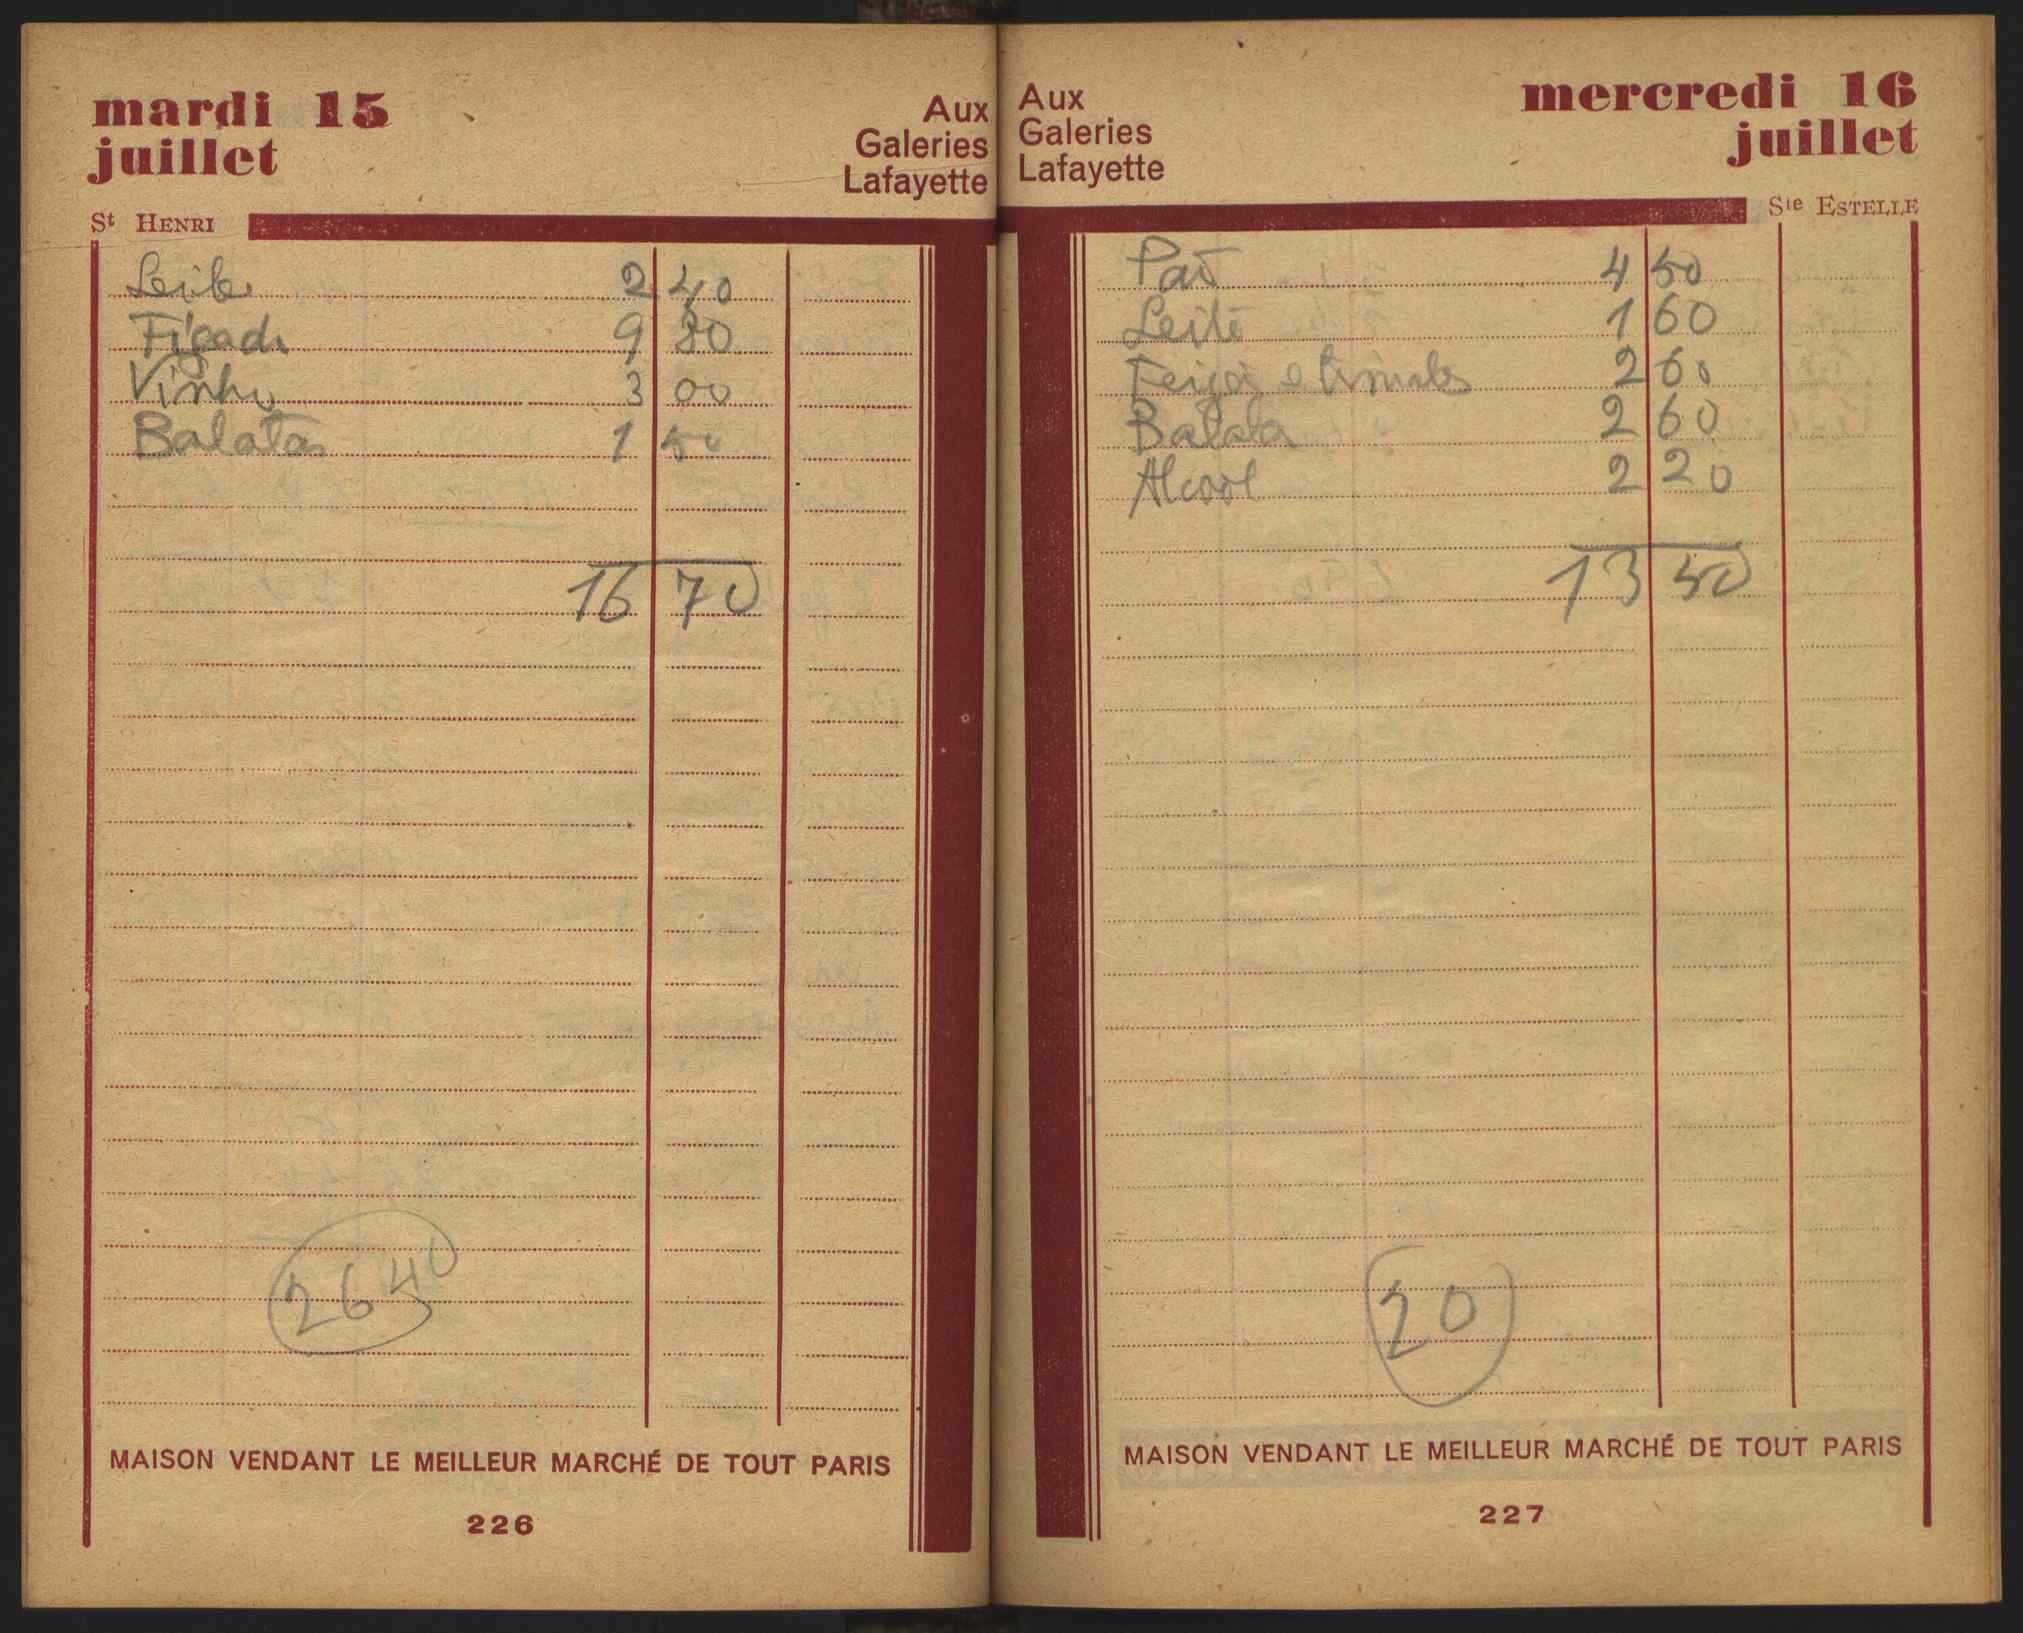 mardi 15
juillet
Aux
Galeries
Lafayette
St HENRI
Leite 2 40
Figado 9 80
Vinho 3 00
Batatas 1 50
16 70
26 40
MAISON VENDANT LE MEILLEUR MARCHÉ DE TOUT PARIS
226
Aux
Galeries
Lafayette
mercredi 16
juillet
Ste ESTELLE
Pão 4 50
Leite 1 60
2 60
Batata 2 60
Alcool 2 20
13 50
20
MAISON VENDANT LE MEILLEUR MARCHÉ DE TOUT PARIS
227